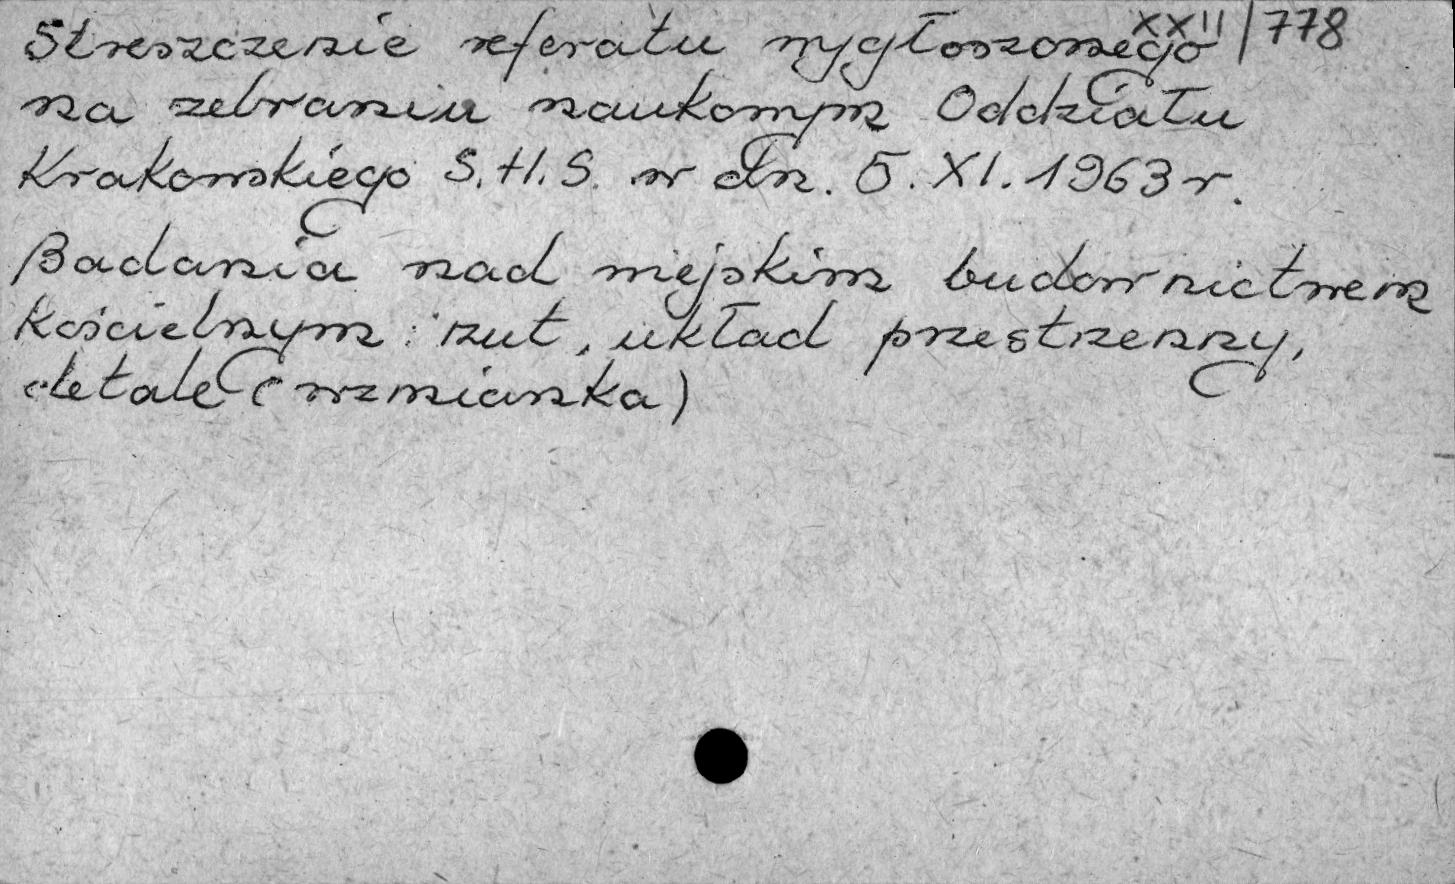 XXII/778
Streszczenie referatu wygłoszonego
na zebraniu naukowym Oddziału
Krakowskiego S.H.S. w dn. 5.XI.1963 r.
Badania nad miejskim budownictwem
kościelnym: rzut, układ przestrzenny,
detale (wzmianka)